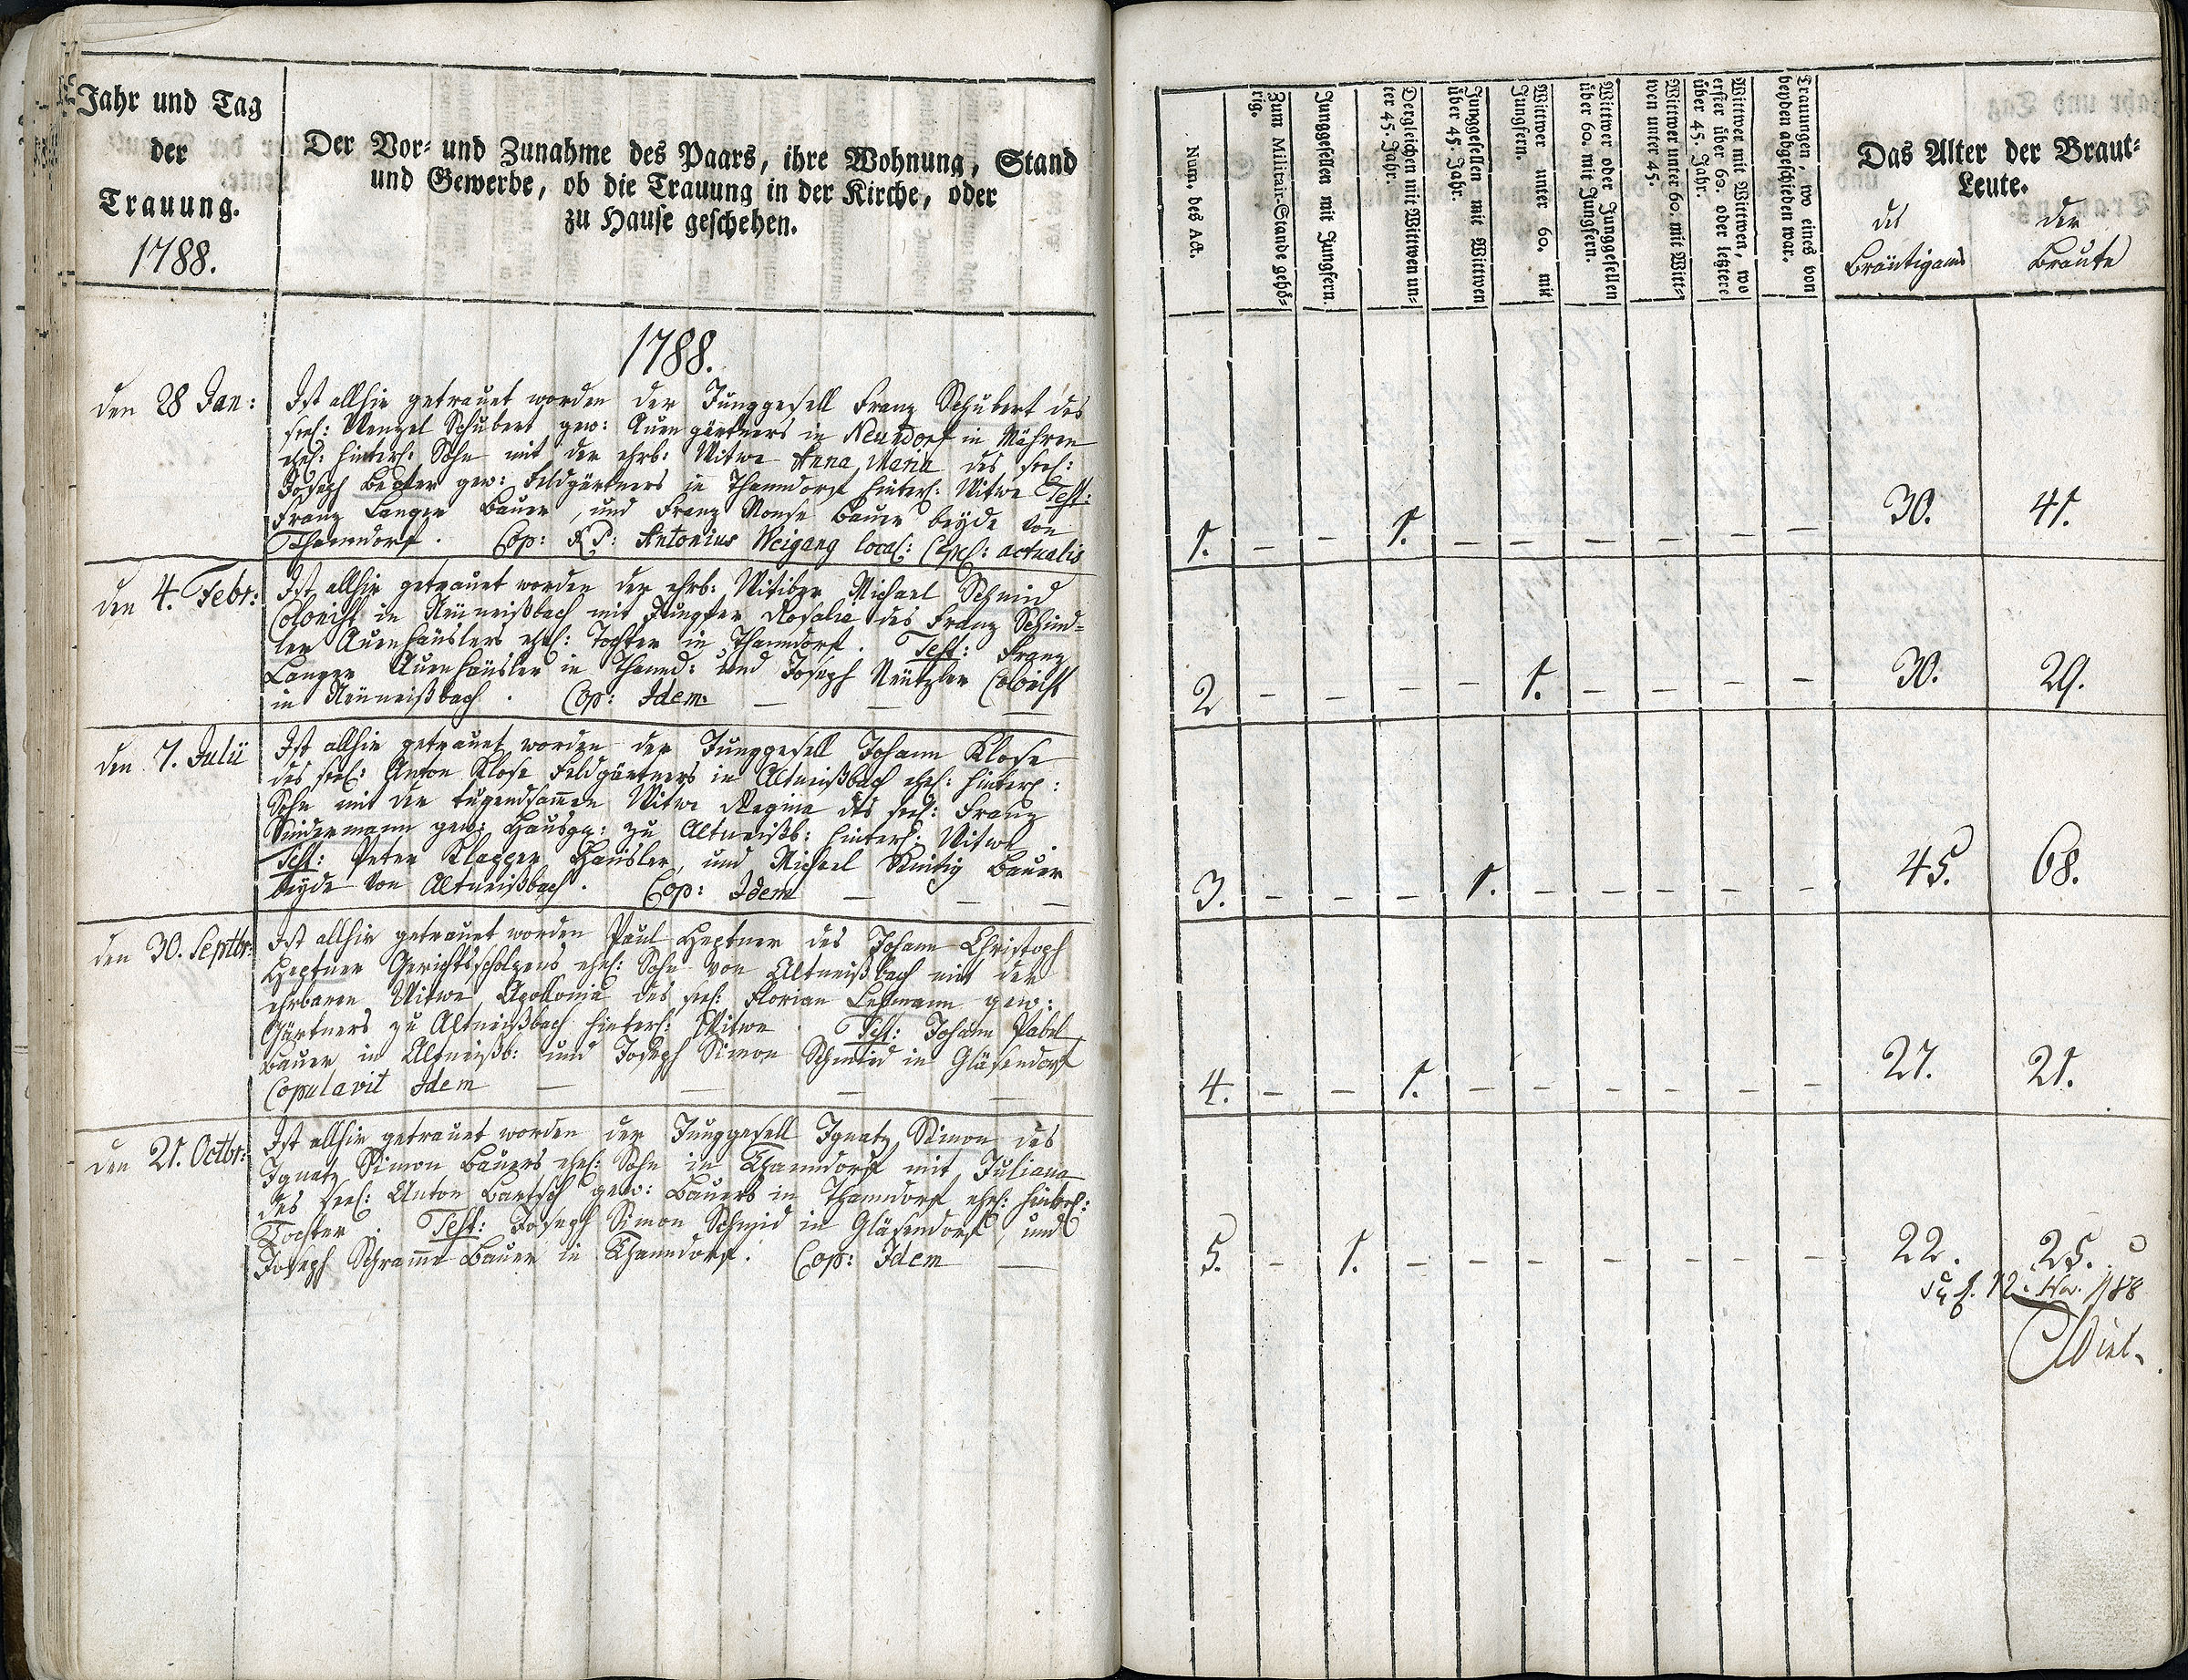 Jahr und Tag
der
Trauung.
1788.
Der Vor- und Zunahme des Paars, ihre Wohnung, Stand
und Gewerbe, ob die Trauung in der Kirche, oder
zu Hause geschehen.
1788.
den 28 Jan:
Ist allhir getrauet worden der Junggesell Franz Schubert des
seel: Wenzel Schubert gew: Auengärtners in Neundorf in Mähren
ehel: hinterl: Sohn mit der ehrb: Witwe Anna Maria des seel:
Joseph gew: Feldgärtners in Thanndorf hinterl: Witwe Test:
Franz Langer Bauer, und Franz Bauer beyde von
Thanndorf. Cop: R P: Antonius Weigang local: Capel: actualis
den 4. Febr:
Ist allhir getrauet worden der ehrb: Witiber Michael Schmid
Colonist in Neuneißbach mit Jungfer Rosalie des Franz Schind-
ler Auenhäuslers ehel: Tochter in Thanndorf. Test: Franz
Langer Auenhäusler in Thannd: und Joseph Colonist
in Neuneißbach. Cop: Idem. — — —
den 7. Julii
Ist allhir getrauet worden der Junggesell Johann Klose
des seel: Anton Klose Feldgärtners in Altneißbach ehel: hinterl:
Sohn mit der tugendsamen Witwe Regina des seel: Franz
Sindermann gew: Hausg: zu Altneißb: hinterl: Witwe.
Test: Peter Häusler, und Michael Bauer
beyde von Altneißbach. Cop: Idem — — —
den 30. Septbr:
Ist allhir getrauet worden Paul Heptner des Johann Christoph
Heptner Gerichtsscholzens ehel: Sohn von Altneißbach mit der
ehrbaren Witwe Apollonia des seel: Florian Lehmann gew:
Gärtners zu Altneißbach hinterl: Witwe. Test: Johann Pabel
Bauer in Altneißb: und Joseph Simon Schmied in Gläsendorf
Copulavit Idem — — — —
den 21. Octbr:
Ist allhir getrauet worden der Junggesell Ignatz Simon des
Ignatz Simon Bauers ehel: Sohn in Thanndorf mit Juliana
des seel: Anton Bartsch gew: Bauers in Thanndorf ehel: hinterl:
Tochter. Test: Joseph Simon Schmid in Gläsendorf, und
Joseph Schramm Bauer in Thanndorf. Cop: Idem —
Num. des Act.
Zum Militair-Stande gehö-
rig.
Junggesellen mit Jungfern.
Dergleichen mit Wittwen un-
ter 45. Jahr.
Junggesellen mit Wittwen
über 45. Jahr.
Wittwer unter 60. mit
Jungfern.
Wittwer oder Junggesellen
über 60. mit Jungfern.
Wittwer unter 60. mit Witt-
wen unter 45.
Wittwer mit Wittwen, wo
erster über 60. oder letztere
über 45. Jahr.
Trauungen, wo eines von
beyden abgeschieden war.
Das Alter der Braut-
Leute.
des
Bräutigams
der
Braute
1. – – 1. – – – – – – 30. 41.
2 – – – – 1. – – – – 30. 29.
3. – – – 1. – – – – – 45. 68.
4. – – 1. – – – – – – 27. 21.
5. – 1. – – – – – – – 22. 25.
12. Nov. 1788